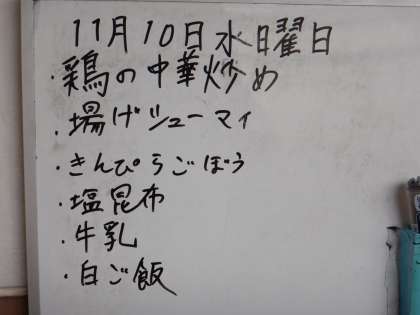 11月10日水曜日
・鶏の中華炒め
・揚げシューマイ
・きんぴらごぼう
・塩昆布
・牛乳
・白ご飯